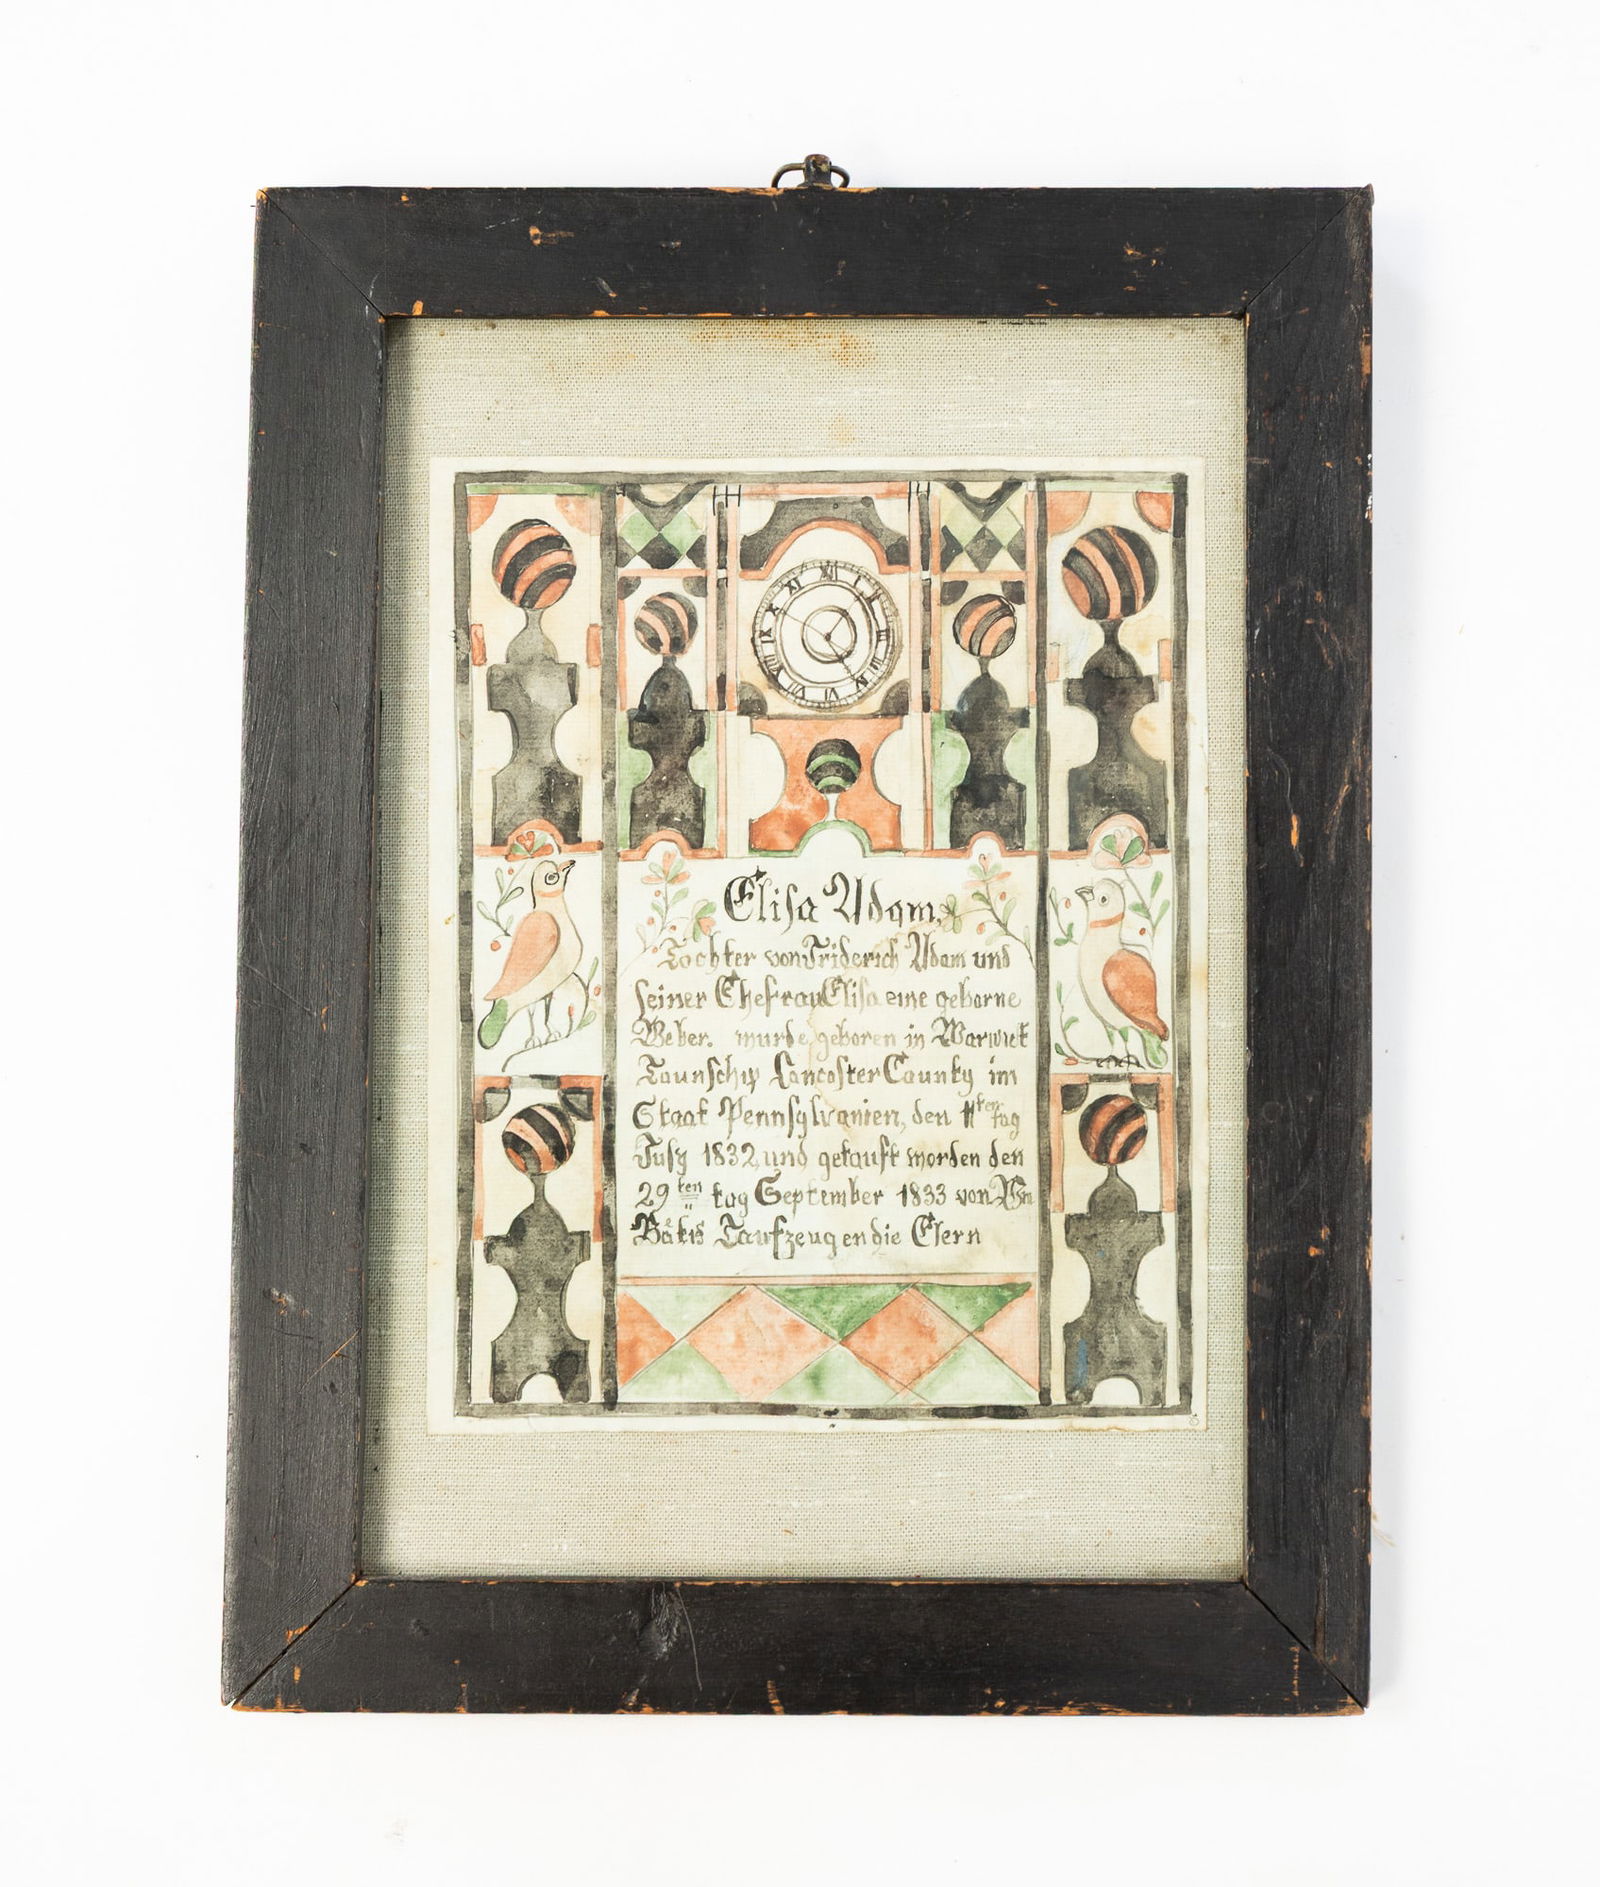 XII I II III IIII V VI VII VIII IX X XI
Elisa Adam,
Tochter von Friderich Adam und
seiner Ehefrau Elisa eine geborne
Weber. wurde geboren in Warwick
Taunschip Lancaster Caunty im
Staat Pennsylvanien, den 11ten tag
July 1832, und getauft worden den
29ten tag September 1833 von Wm
Taufzeugen die Eltern